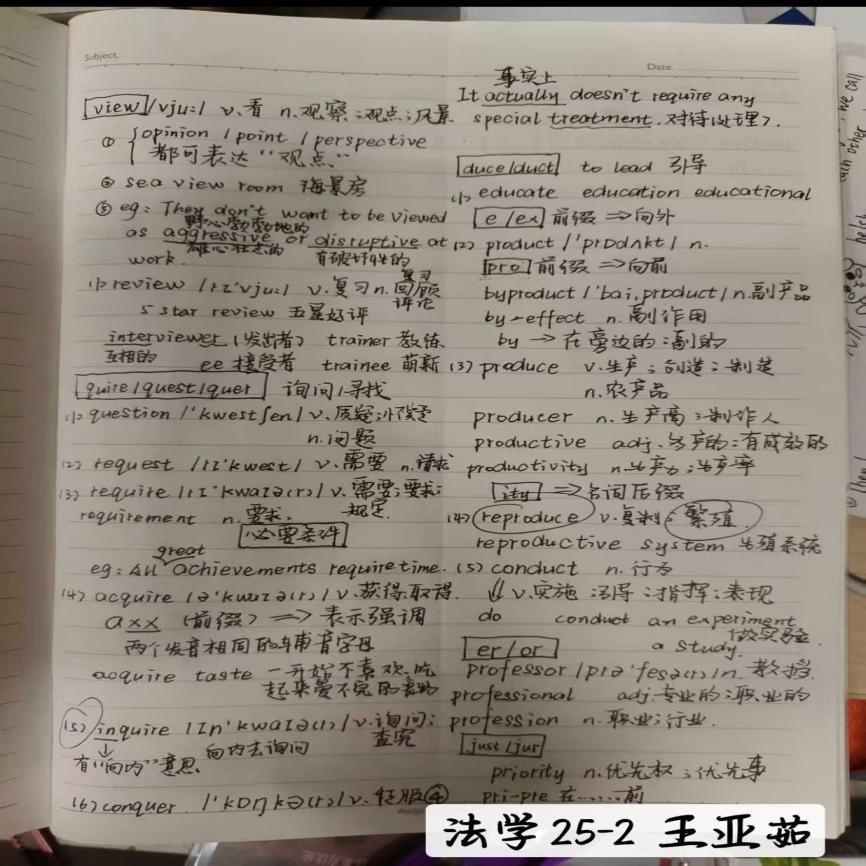 Subject.
view /vju:/ v.看 n.观察;观点;风景
① opinion / point / perspective
都可表达“观点”
② sea view room 海景房
③ eg: They don't want to be viewed
野心勃勃地的
as aggressive or disruptive at
雄心壮志的 有破坏性的
work.
(1) review /rɪ'vju:/ v.复习 n.回顾
复习
评论
5 star review 五星好评
interviewer (发出者) trainer 教练
互相的 ee 接受者 trainee 萌新
quire/quest/quer 询问/寻找
(1) question /'kwestʃen/ v.质疑;怀疑
n.问题
(2) request /rɪ'kwest/ v.需要 n.请求
(3) require /rɪ'kwaɪə(r)/ v.需要;要求;
requirement n.要求; 规定.
必要条件
great
eg: All achievements require time.
(4) acquire /ə'kwaɪə(r)/ v.获得.取得.
axx (前缀) => 表示强调
两个发音相同的辅音字母
acquire taste 一开始不喜欢,吃
起来爱不完的
(5) inquire /ɪn'kwaɪə(r)/ v.询问;
查究
有“向内”意思 向内去询问
(6) conquer /'kɒŋkə(r)/ v.征服④
Date.
事实上
It actually doesn't require any
special treatment. 对待(处理).
duce/duct to lead 引导
(1) educate education educational
e/ex 前缀 => 向外
(2) product /'prɒdʌkt/ n.
pro 前缀 => 向前
byproduct /'bai,prɒduct/ n.副产品
by-effect n.副作用
by → 在旁边的;副的
(3) produce v.生产;创造;制造
n.农产品
producer n.生产商;制作人
productive adj.多产的;有成效的
productivity n.生产力;生产率
ity => 名词后缀
(4) reproduce v.复制;繁殖.
reproductive system 生殖系统
(5) conduct n.行为
⇓ v.实施;引导;指挥;表现
do conduct an experiment
做实验
a study.
er/or
professor /prə'fesə(r)/ n.教授.
professional adj.专业的;职业的
profession n.职业;行业.
just/jur
priority n.优先权;优先事
pri-pre 在……前
法学25-2 王亚茹